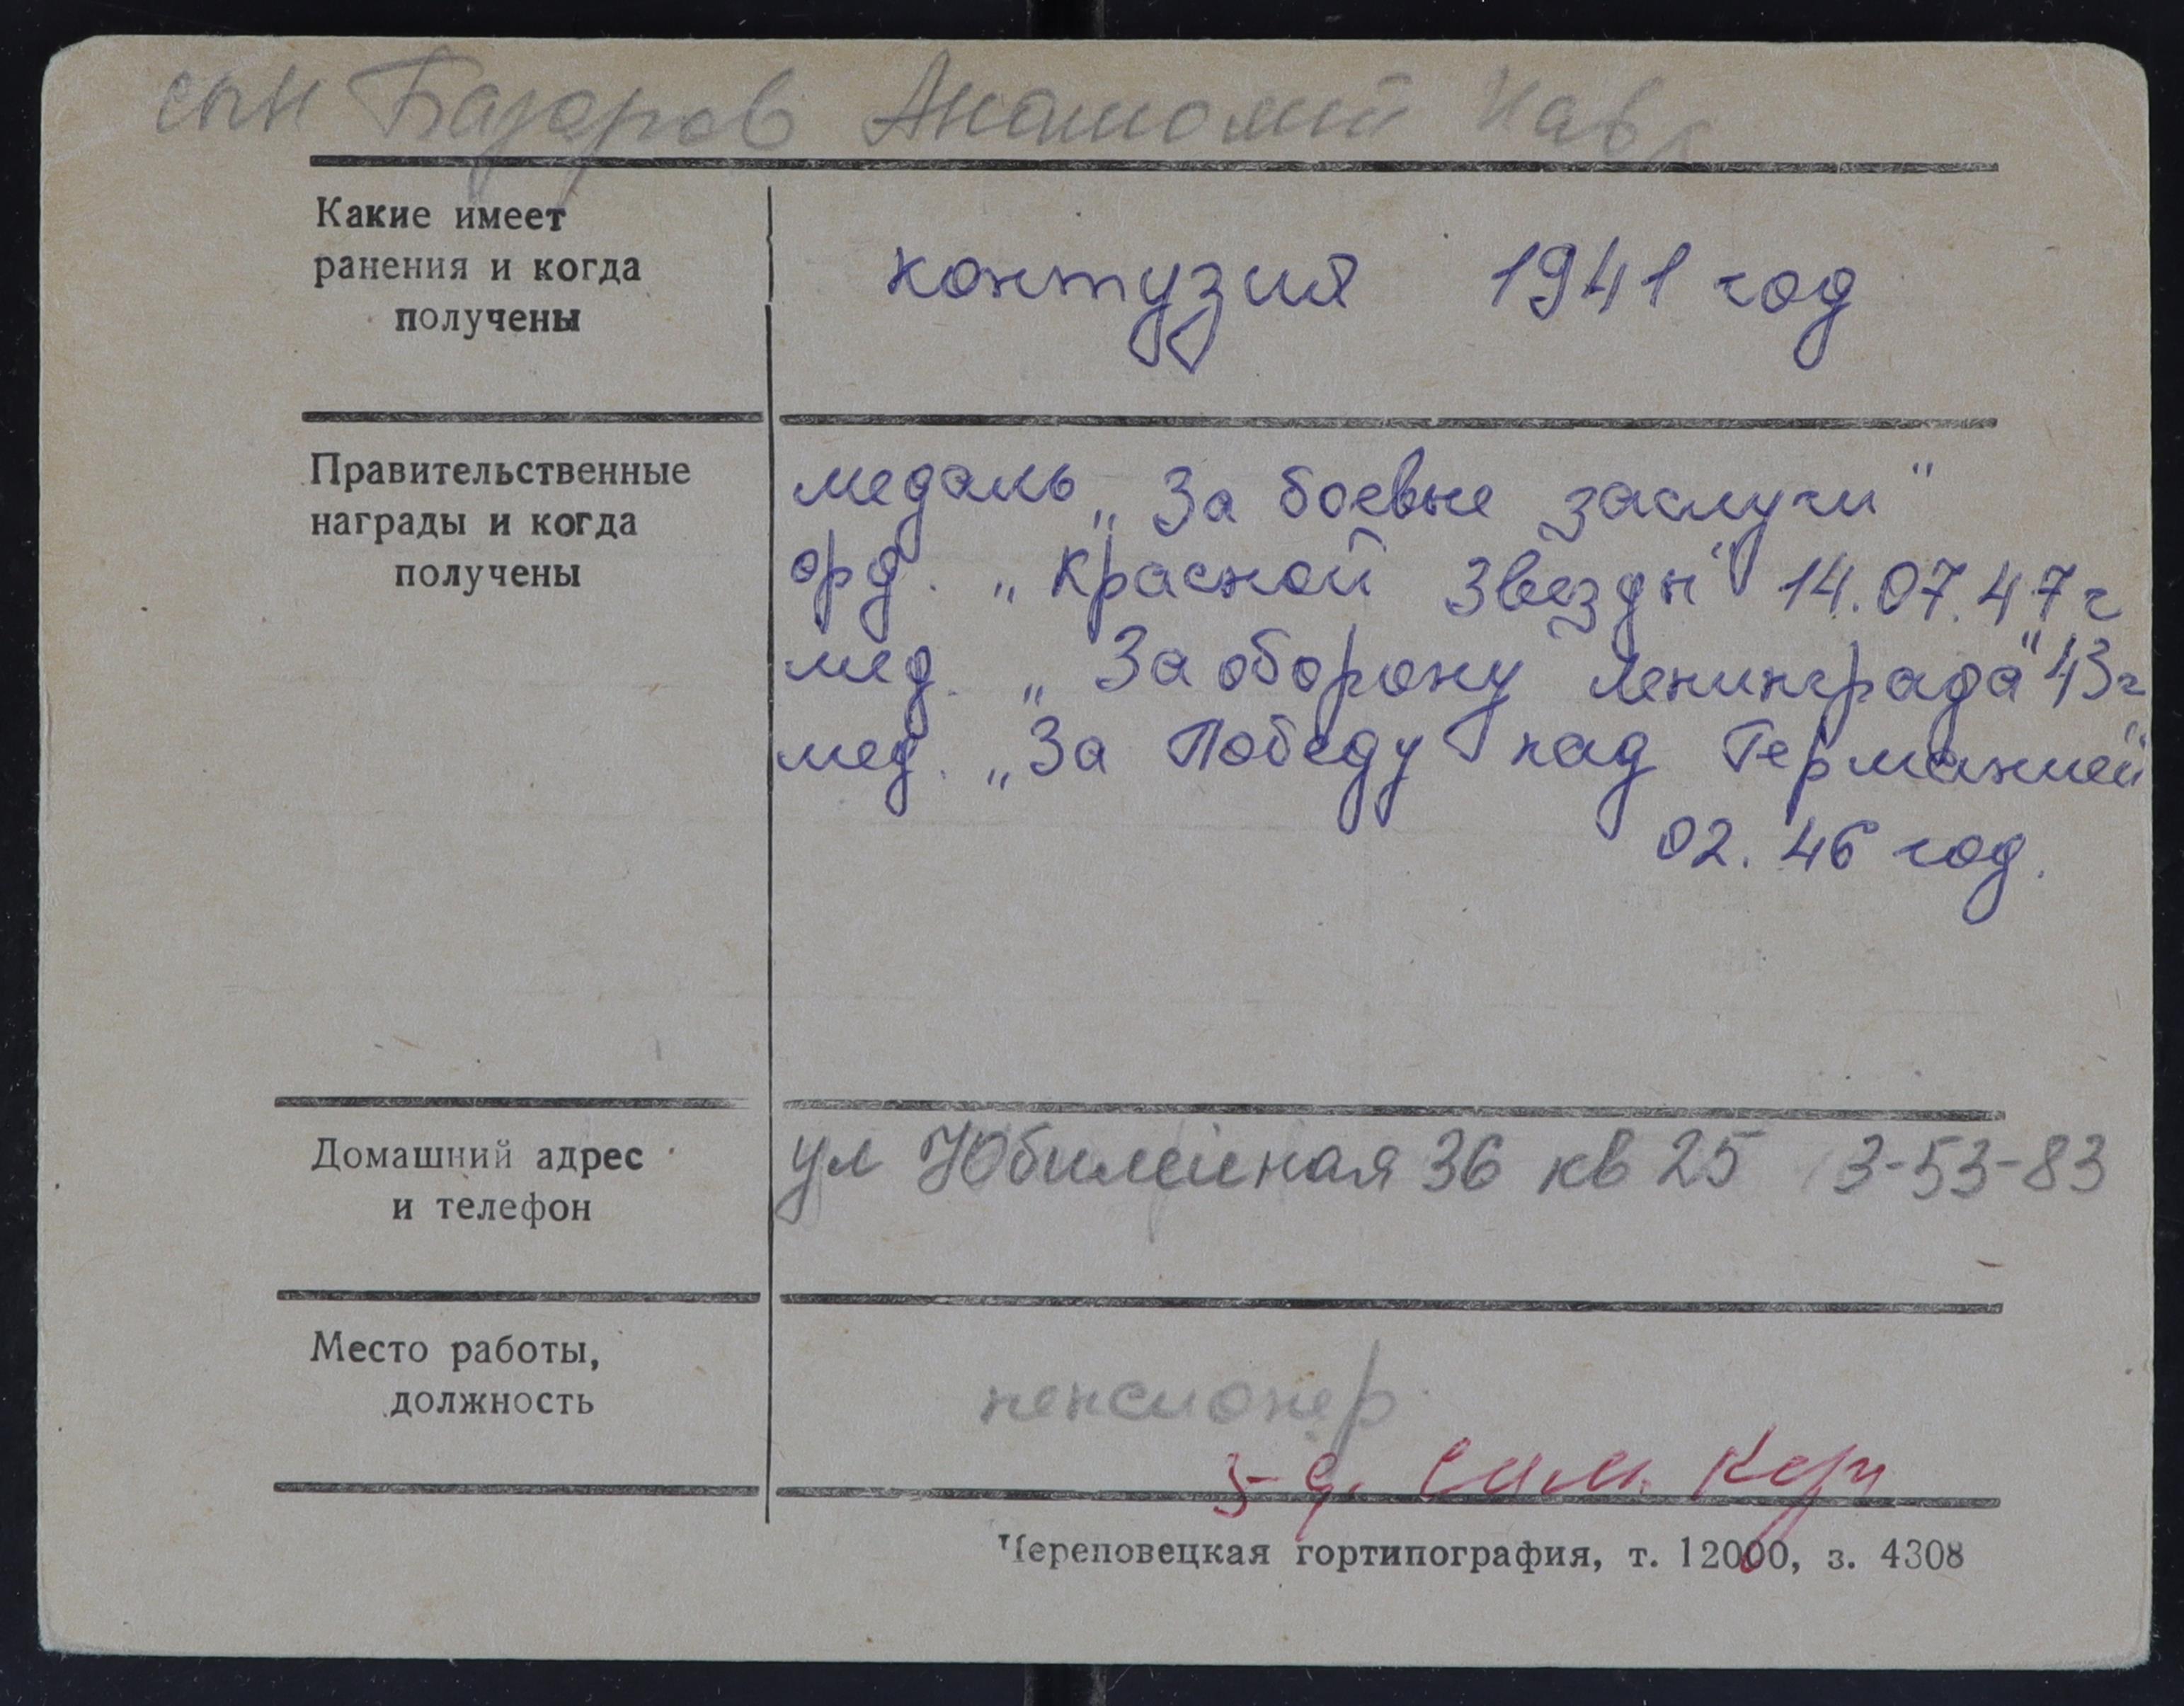 сын Базоров Анатолий Павл
Какие имеет
ранения и когда
получены
контузия 1941 год
Правительственные
награды и когда
получены
медаль „За боевые заслуги"
орд. „Красной Звезды" 14.07.47г
мед. „За оборону Ленинграда" 43г
мед. „За Победу над Германией"
02.46 год.
Домашний адрес
и телефон
ул Юбилейная 36 кв 25 3-53-83
Место работы,
должность
пенсионер
з-д. сил. кирп
Череповецкая гортипография, т. 12000, з. 4308